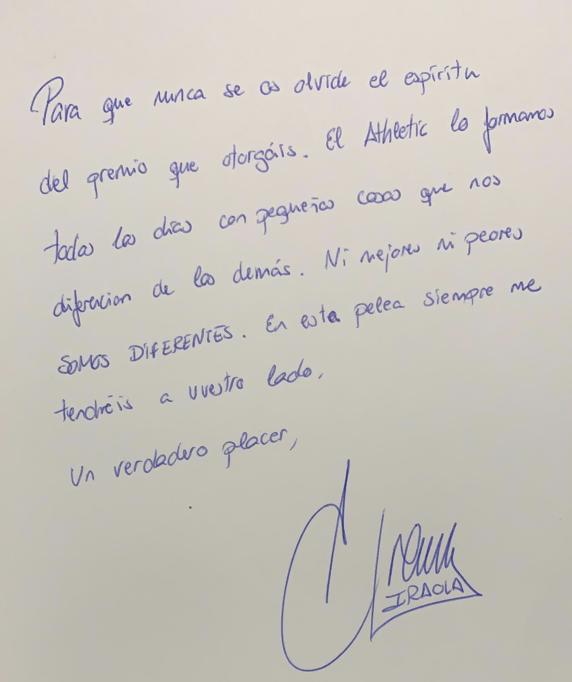 Para que nunca se os olvide el espíritu
del premio que otorgáis. El Athletic lo formamos
todos los días con pequeñas cosas que nos
diferencian de los demás. Ni mejores ni peores
SOMOS DIFERENTES. En esta pelea siempre me
tendréis a vuestro lado.
Un verdadero placer,
IRAOLA